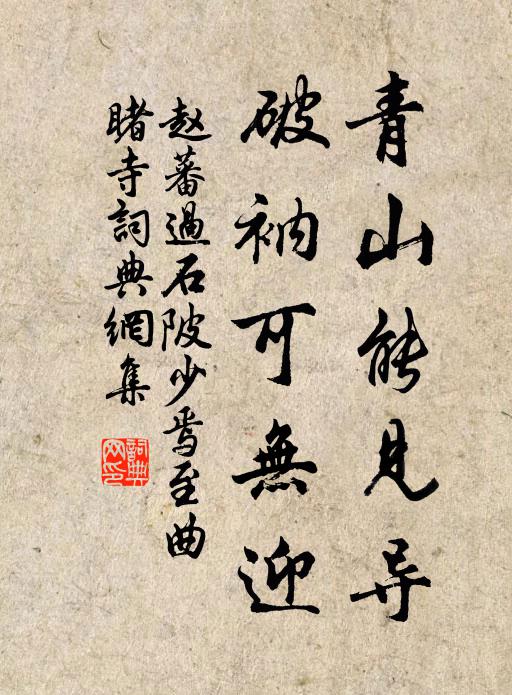 青山能见导
破衲可無迎
赵蕃過石陂少焉至曲
睹寺詞典網集
詞典網印